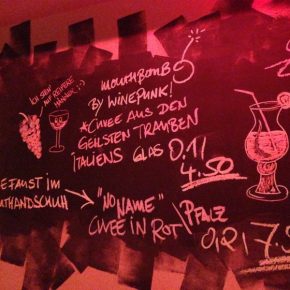 ICH STEH
AUF REIFERE
MÄNNER! ;-)
MOUTHBOMB
BY WINEPUNK!
*CUVEE AUS DEN
GEILSTEN TRAUBEN
ITALIENS GLAS 0,1l
4.50
EFAUST IM
THANDSCHUH
"NO NAME"
CUVEE IN ROT PFALZ
0,2l 7.5